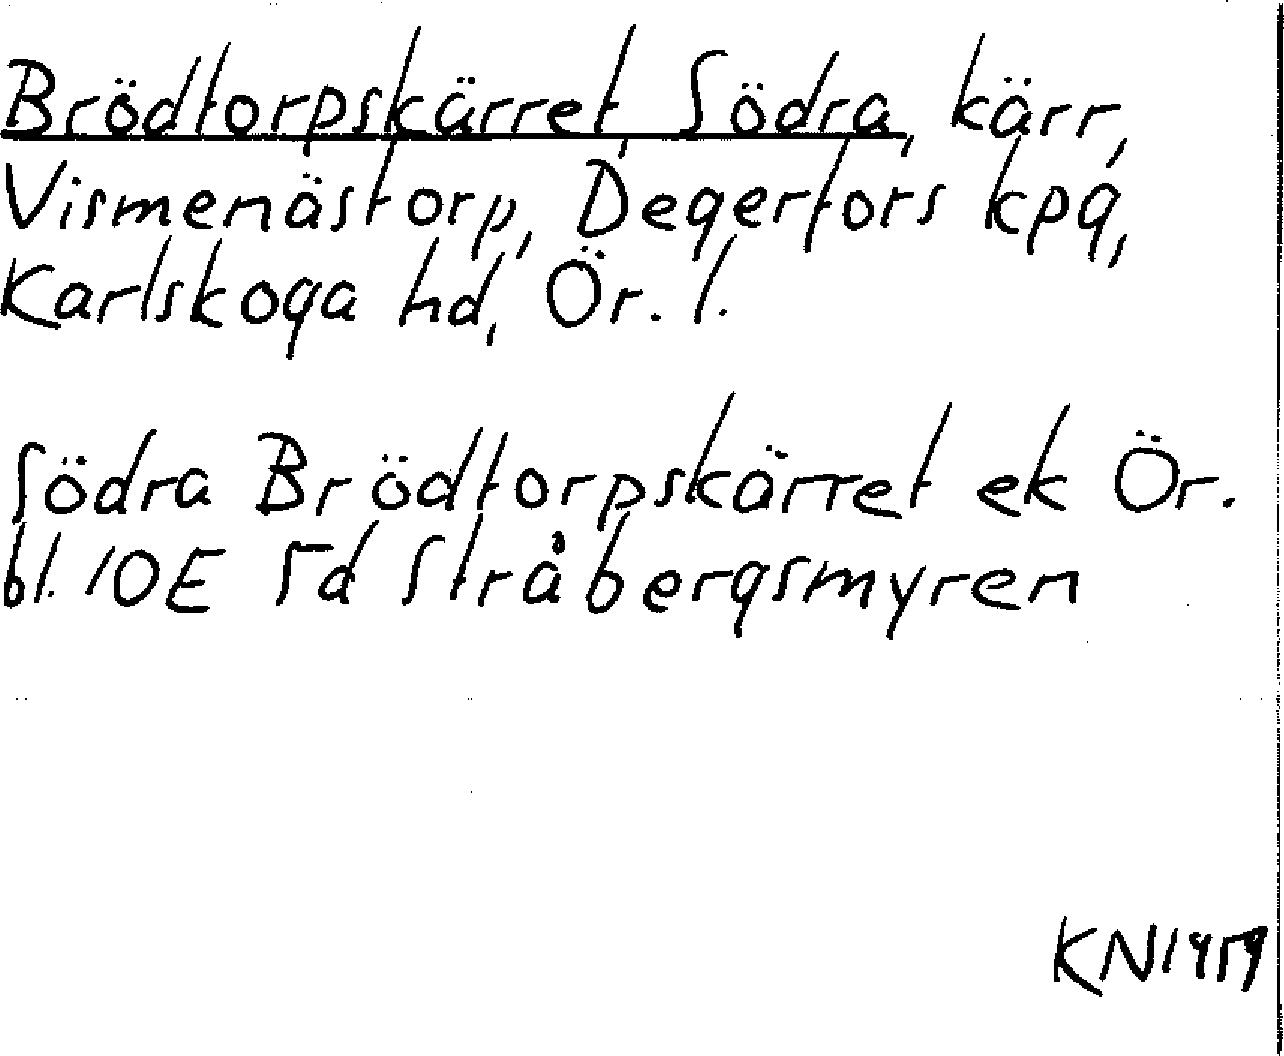 Brödtorpskärret, Södra, kärr,
Vismenästorp, Degerfors kpg,
Karlskoga hd, Ör. l.
Södra Brödtorpskärret ek Ör.
bl. 10E 5d Stråbergsmyren